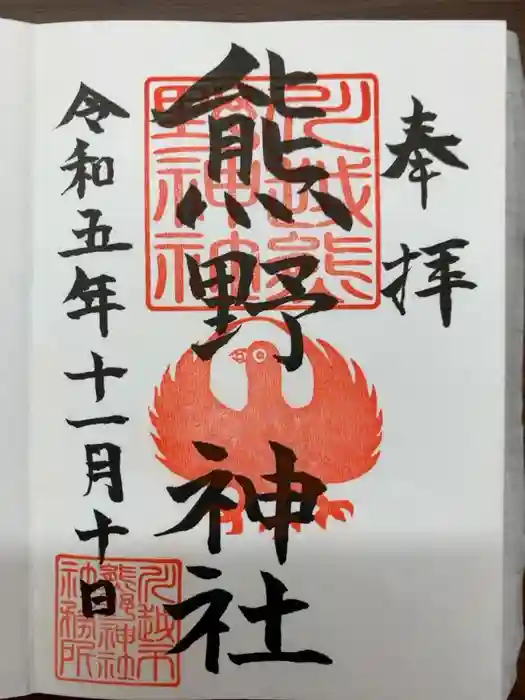 奉拝
熊野神社
令和五年十一月十日
川越熊野神社
川越市熊野神社社務所